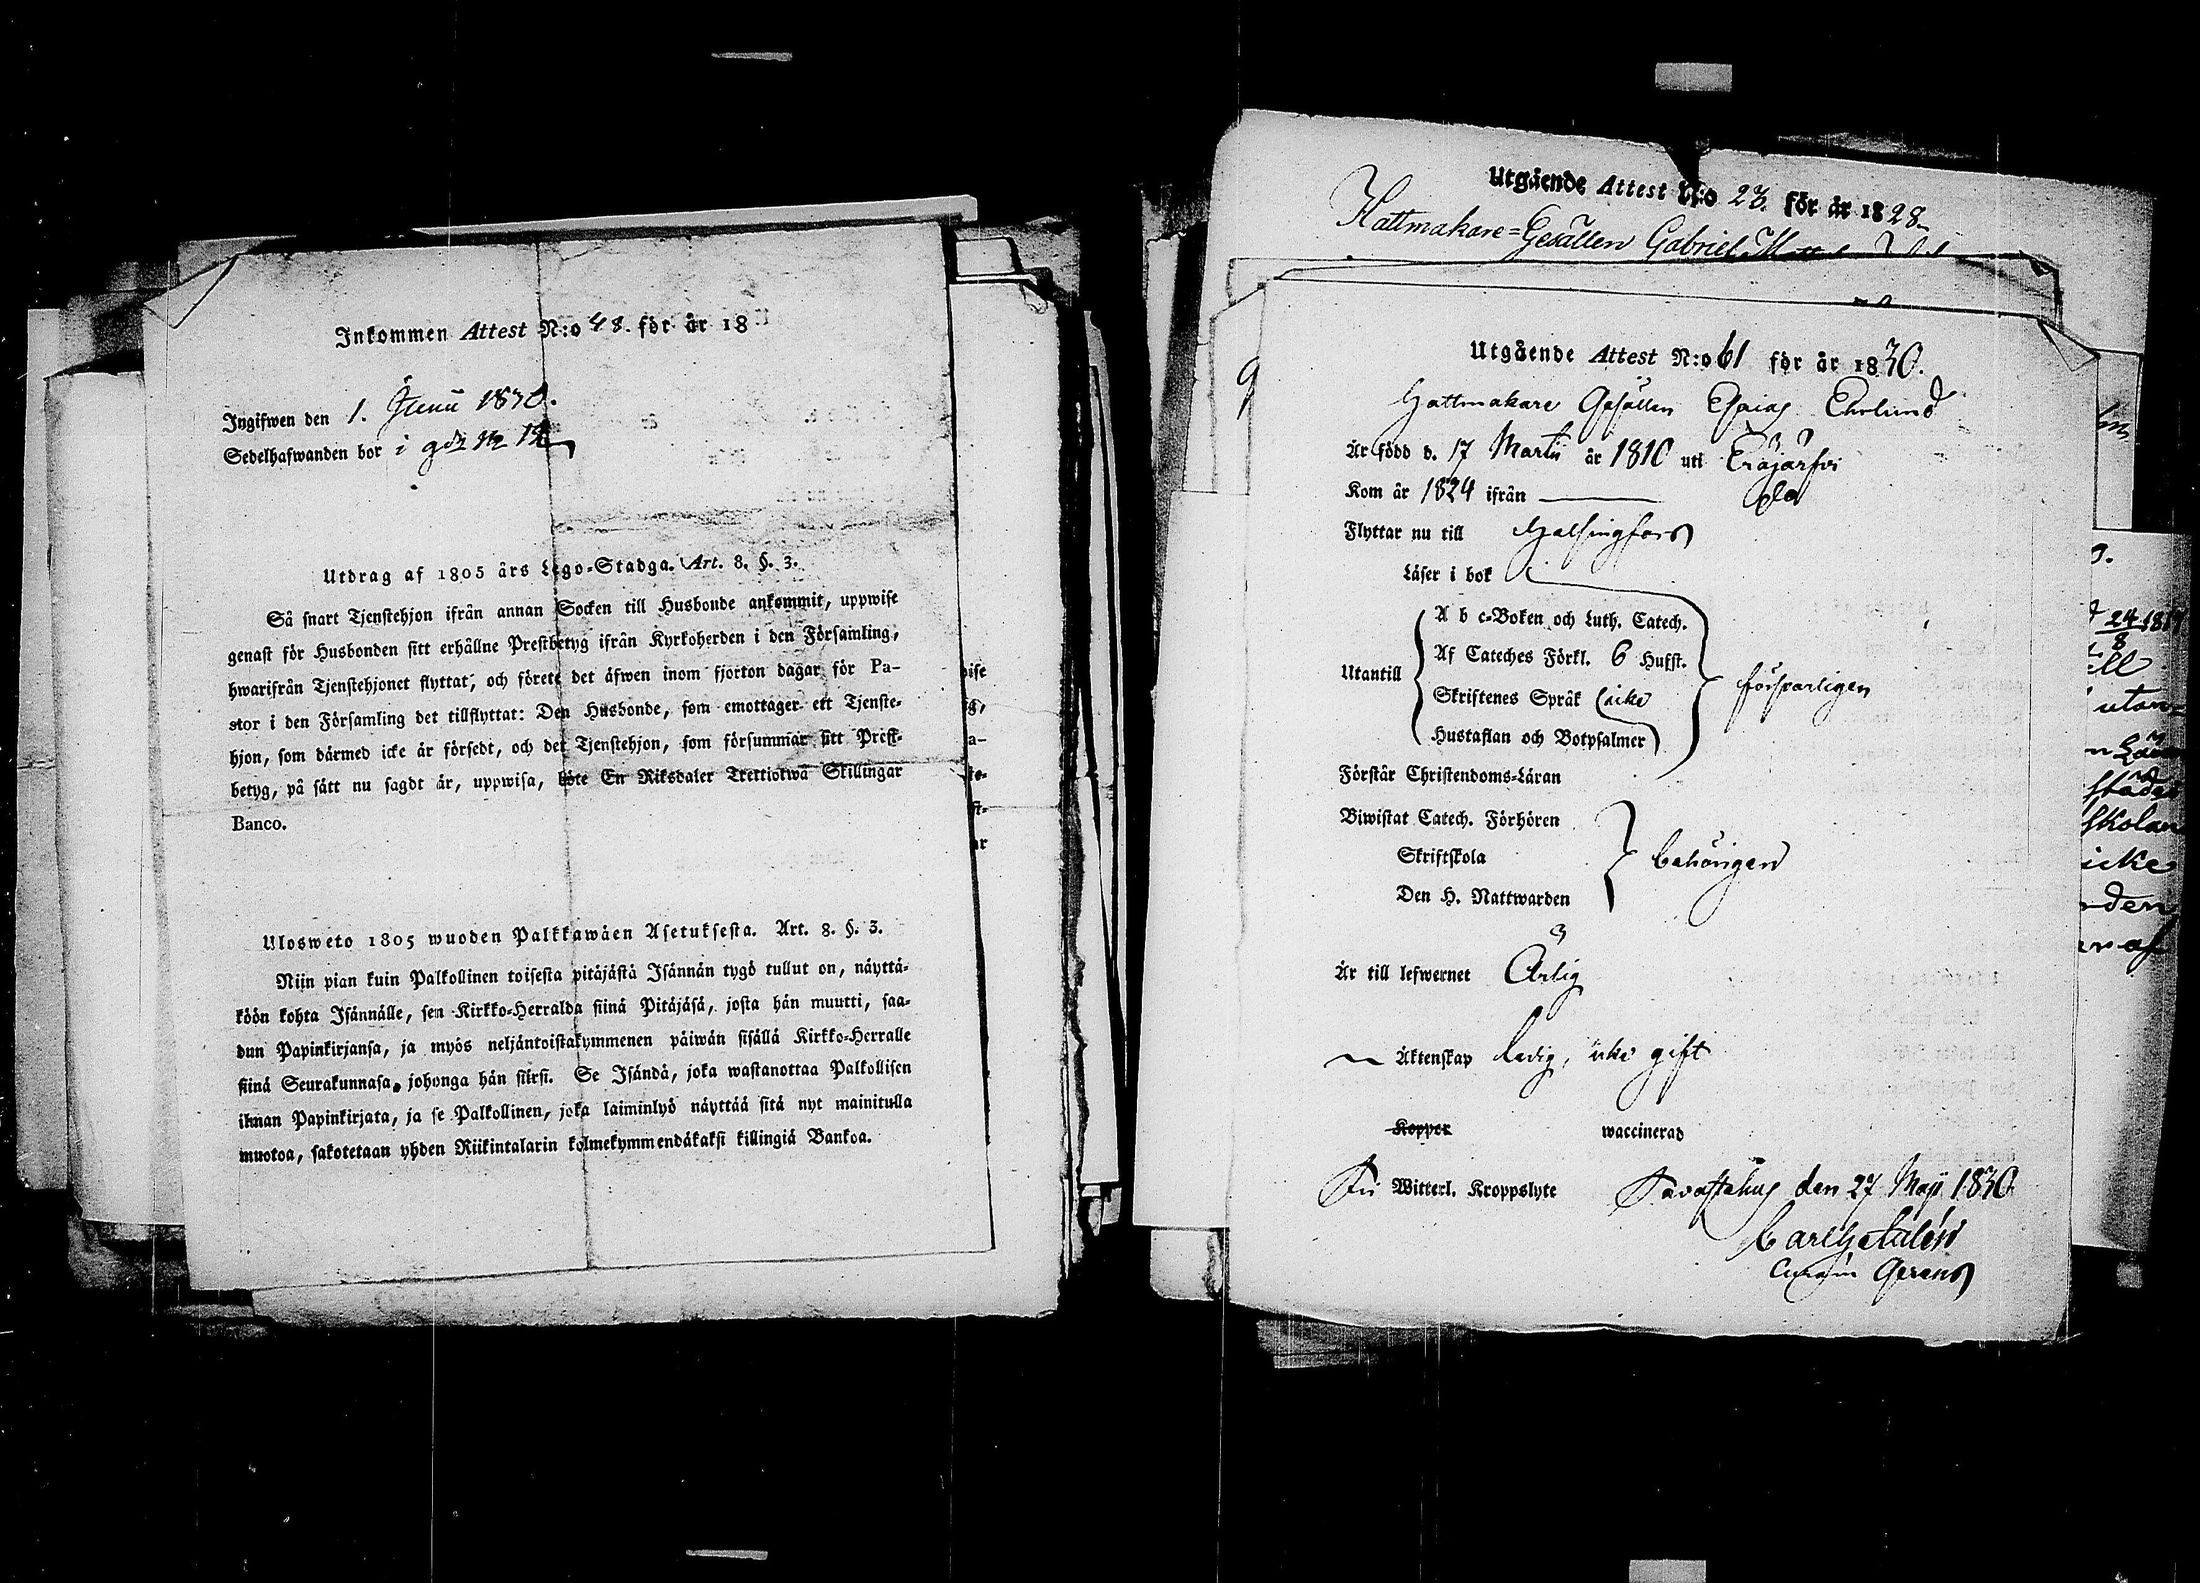 Inkommen Attest N:o 48. för år 18
Ingifwen den 1. Junii 1830.
Sedelhafwanden bor i gdn No 12
Utdrag af 1805 års Lego-Stadga. Art. 8. §. 3.
Så snart Tjenstehjon ifrån annan Socken till Husbonde ankommit, uppwise
genast för Husbonden sitt erhållne Prestbetyg ifrån Kyrkoherden i den Församling,
hwarifrån Tjenstehjonet flyttat, och förete det äfwen inom fjorton dagar för Pa-
stor i den Församling det tillflyttat: Den Husbonde, som emottager ett Tjenste-
hjon, som därmed icke är försedt, och det Tjenstehjon, som försummar sitt Prest-
betyg, på sätt nu sagdt är, uppwisa, böte En Riksdaler Trettiotwå Skillingar
Banco.
Ulosweto 1805 wuoden Palkkawäen Asetuksesta. Art. 8. §. 3.
Niin pian kuin Palkollinen toisesta pitäjästä Isännän tygö tullut on, näyttä-
köön kohta Isännälle, sen Kirkko-Herralda siinä Pitäjäsä, josta hän muutti, saa-
dun Papinkirjansa, ja myös neljäntoistakymmenen päiwän sisällä Kirkko-Herralle
siinä Seurakunnasa, johonga hän siirsi. Se Isändä, joka wastanottaa Palkollisen
ilman Papinkirjata, ja se Palkollinen, joka laiminlyö näyttää sitä nyt mainitulla
muotoa, sakotetaan yhden Riikintalarin kolmekymmendäkaksi killingiä Bankoa.
Utgående Attest N:o 23. för år 1828.
Hattmakare=Gesällen Gabriel
Utgående Attest N:o 61 för år 1830.
Hattmakare Gesällen Esaias Ehrlund
Är född d. 17 Martii år 1810 uti
Kom år 1824 ifrån
Flyttar nu till Helsingfors
Läser i bok
A b c-Boken och Luth. Catech.
Af Cateches Förkl. 6 Hufst.
Utantill
Skriftenes Språk icke
försvarligen
Hustaflan och Botpsalmer
Förstår Christendoms-Läran
Biwistat Catech. Förhören
Skriftskola
behörigen
Den H. Nattwarden
Är till lefwernet Ärlig
Äktenskap ledig, icke gift
Koppor waccinerad
Fri Witterl. Kroppslyte Tavastehus den 27 Maji 1830.
Carl